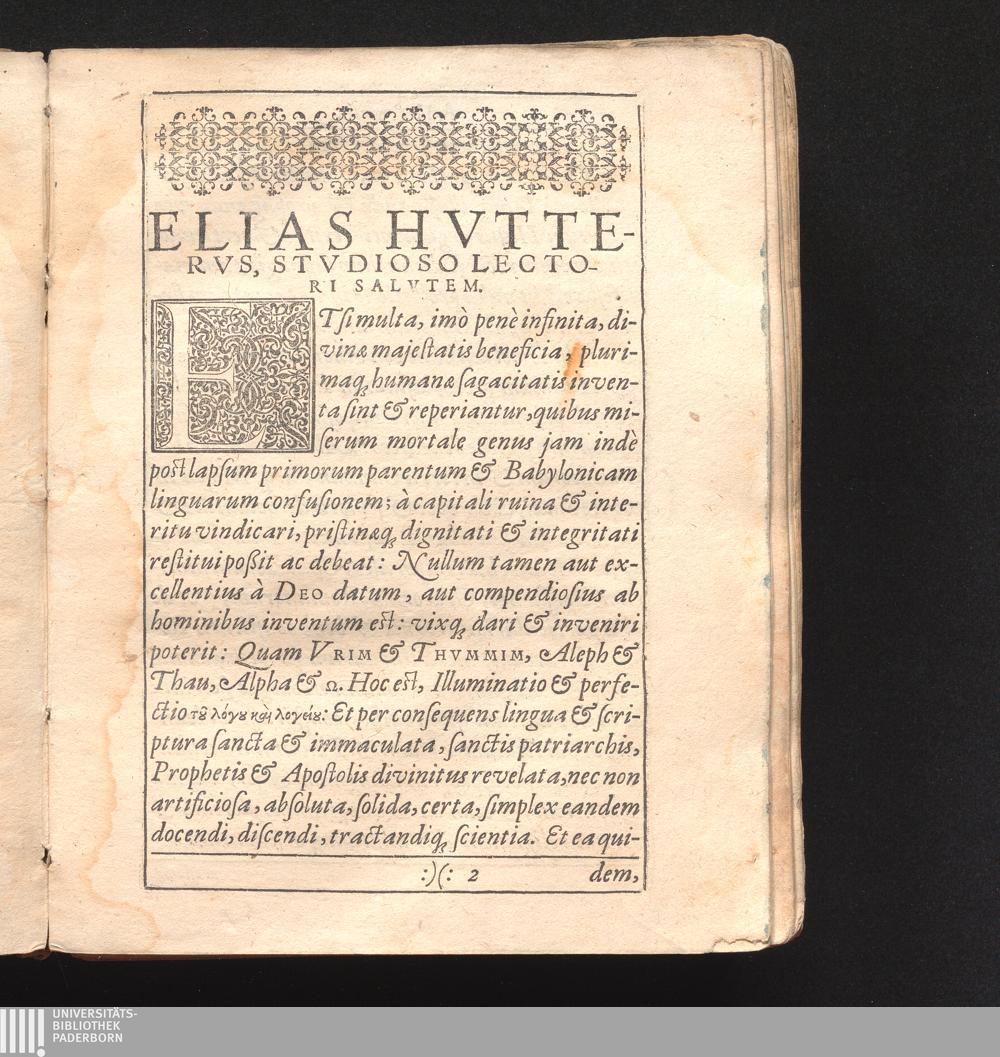 ELIAS HVTTE-
RVS, STVDIOSO LECTO-
RI SALVTEM.
ETſi multa, imò penè infinita, di-
vinæ majeſtatis beneficia, pluri-
maq́ꝫ humanæ ſagacitatis inven-
ta ſint & reperiantur, quibus mi-
ſerum mortale genus jam indè
poſt lapſum primorum parentum & Babylonicam
linguarum confuſionem; à capitali ruina & inte-
ritu vindicari, priſtinæq́ꝫ dignitati & integritati
reſtitui poßit ac debeat: Nullum tamen aut ex-
cellentius à DEO datum, aut compendioſius ab
hominibus inventum eſt: vixq́ꝫ dari & inveniri
poterit: Quam VRIM & THVMMIM, Aleph &
Thau, Alpha & Ω. Hoc eſt, Illuminatio & perfe-
ctio τȣ͂ λόγȣ καὶ λογείȣ: Et per conſequens lingua & ſcri-
ptura ſancta & immaculata, ſanctis patriarchis,
Prophetis & Apoſtolis divinitus revelata, nec non
artificioſa, abſoluta, ſolida, certa, ſimplex eandem
docendi, diſcendi, tractandiq́ꝫ ſcientia. Et ea qui-
:)(: 2 dem,
UNIVERSITÄTS-
BIBLIOTHEK
PADERBORN